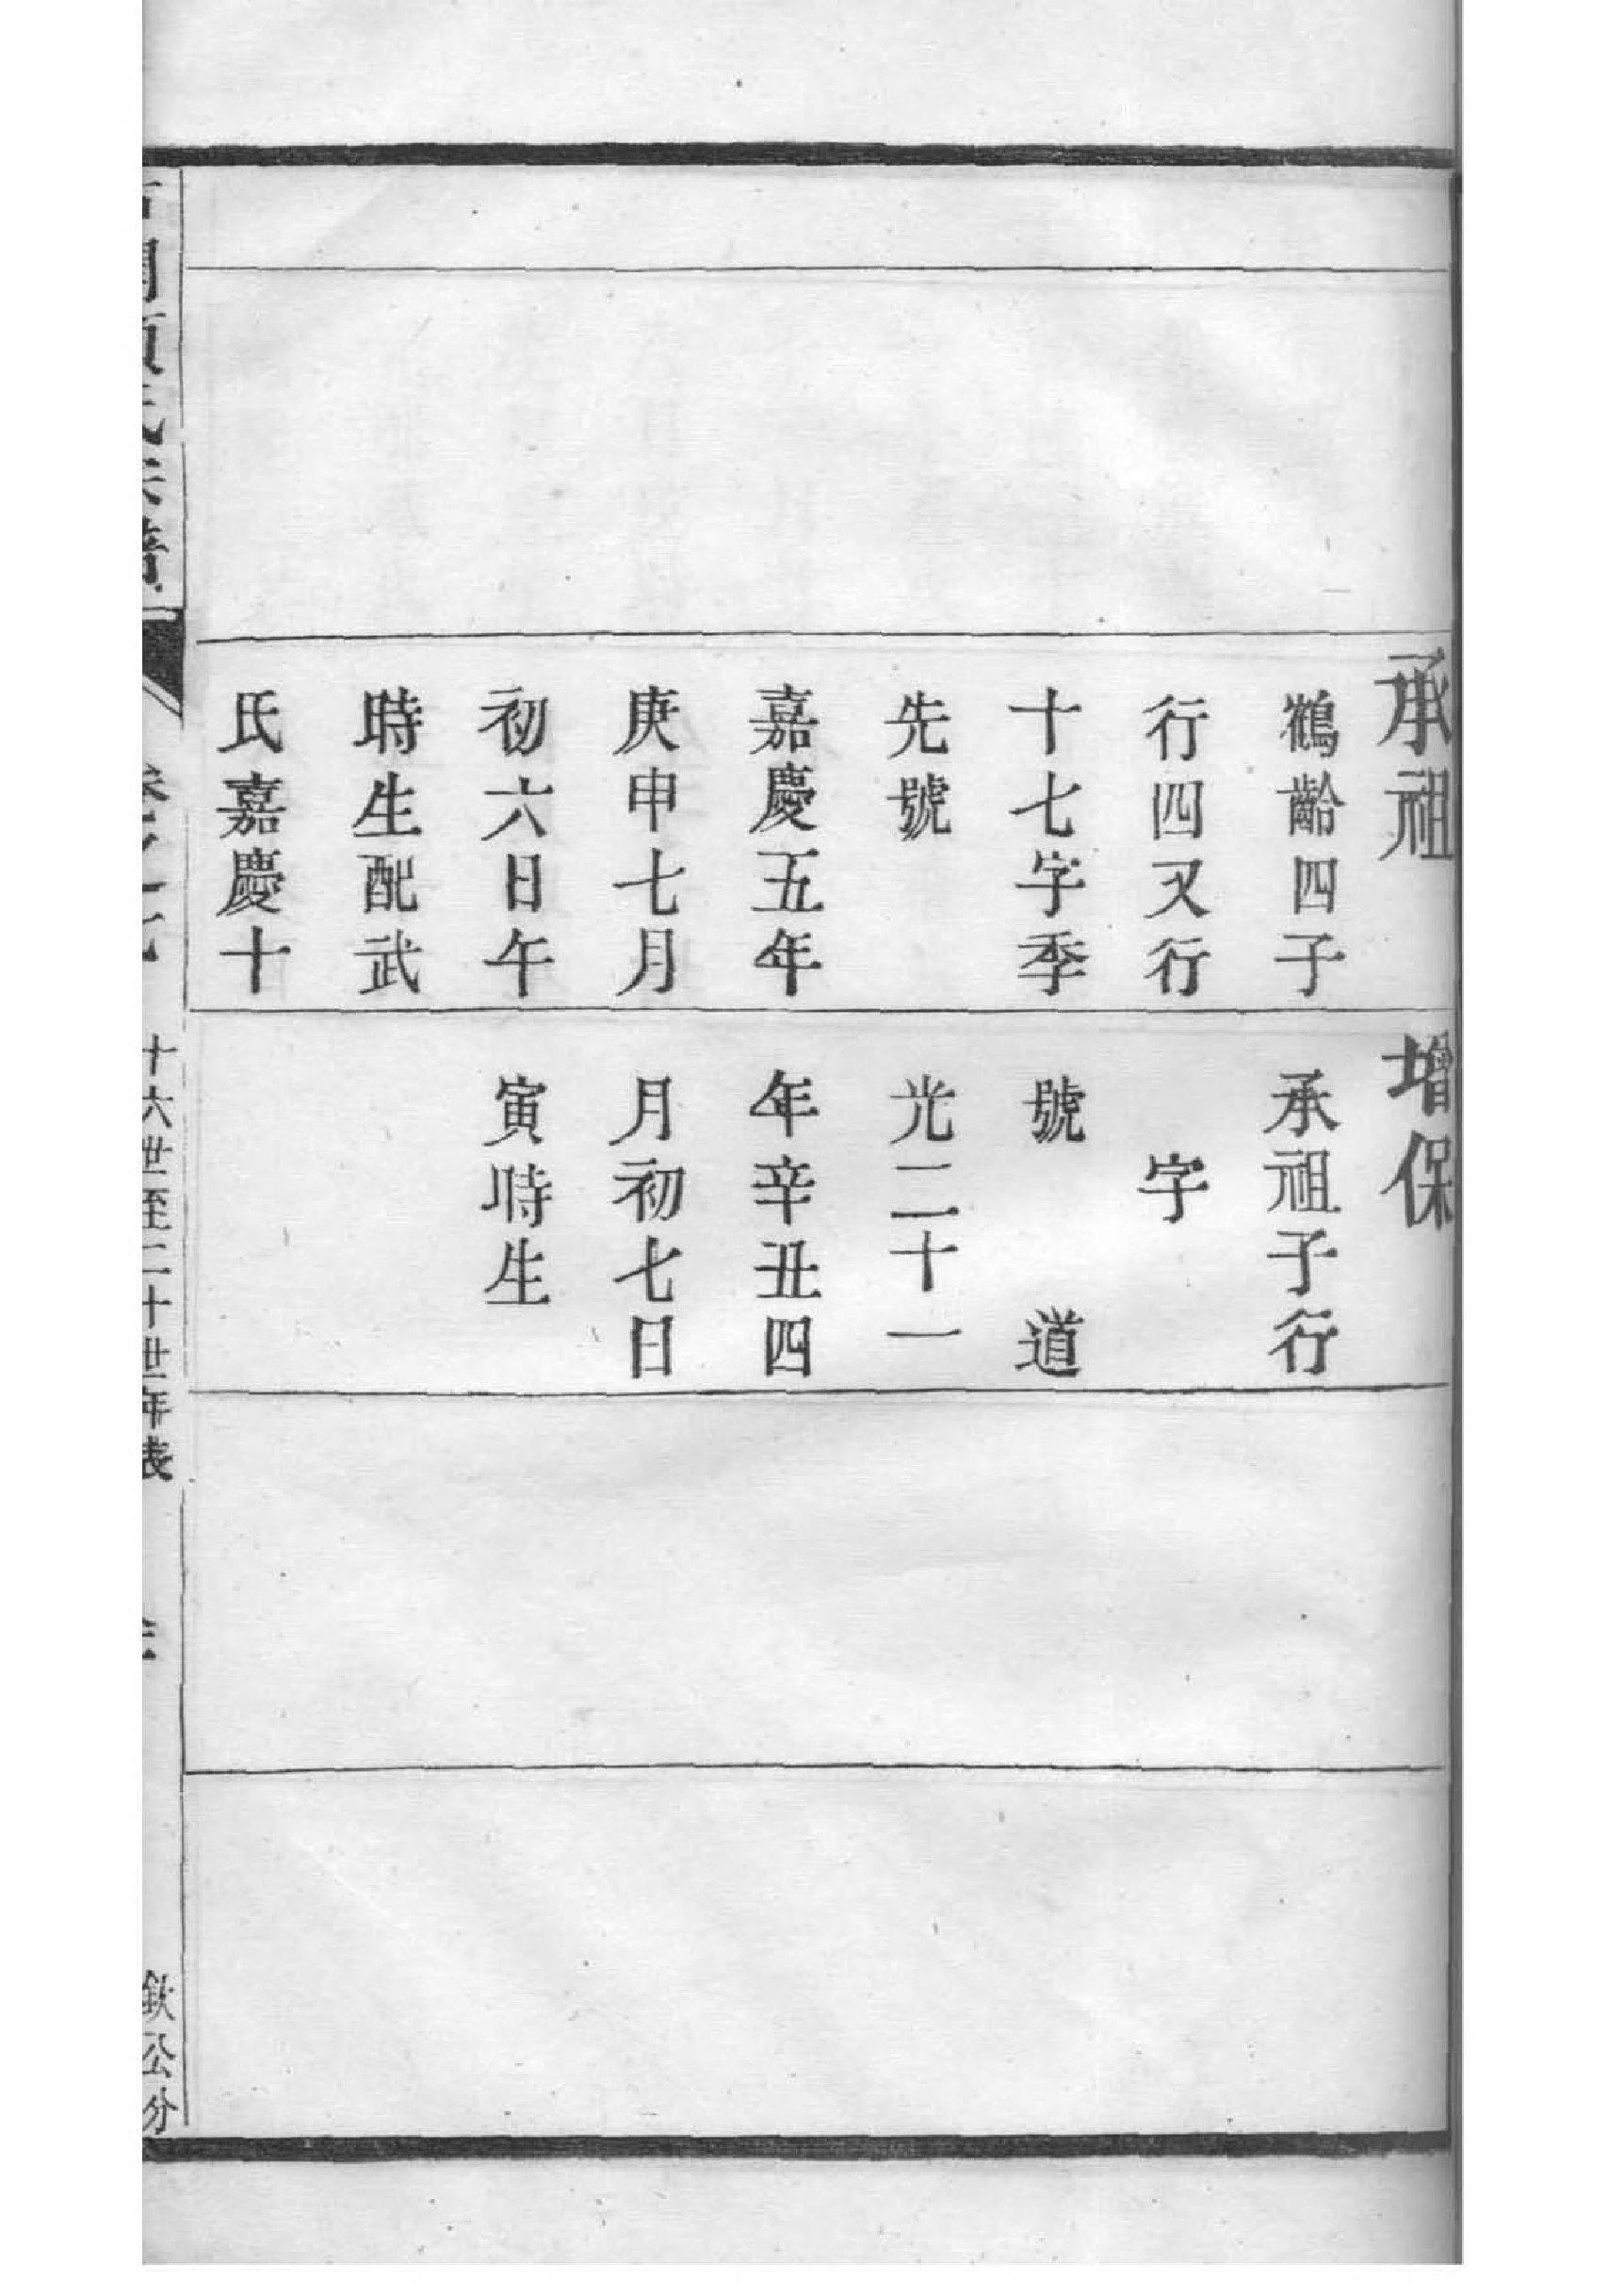 承祖
鶴齡四子
行四又行
十七字季
先號
嘉慶五年
庚申七月
初六日午
時生配武
氏嘉慶十
增保
承祖子行
字
號 道
光二十一
年辛丑四
月初七日
寅時生
十六世至二十世年表
欽公分